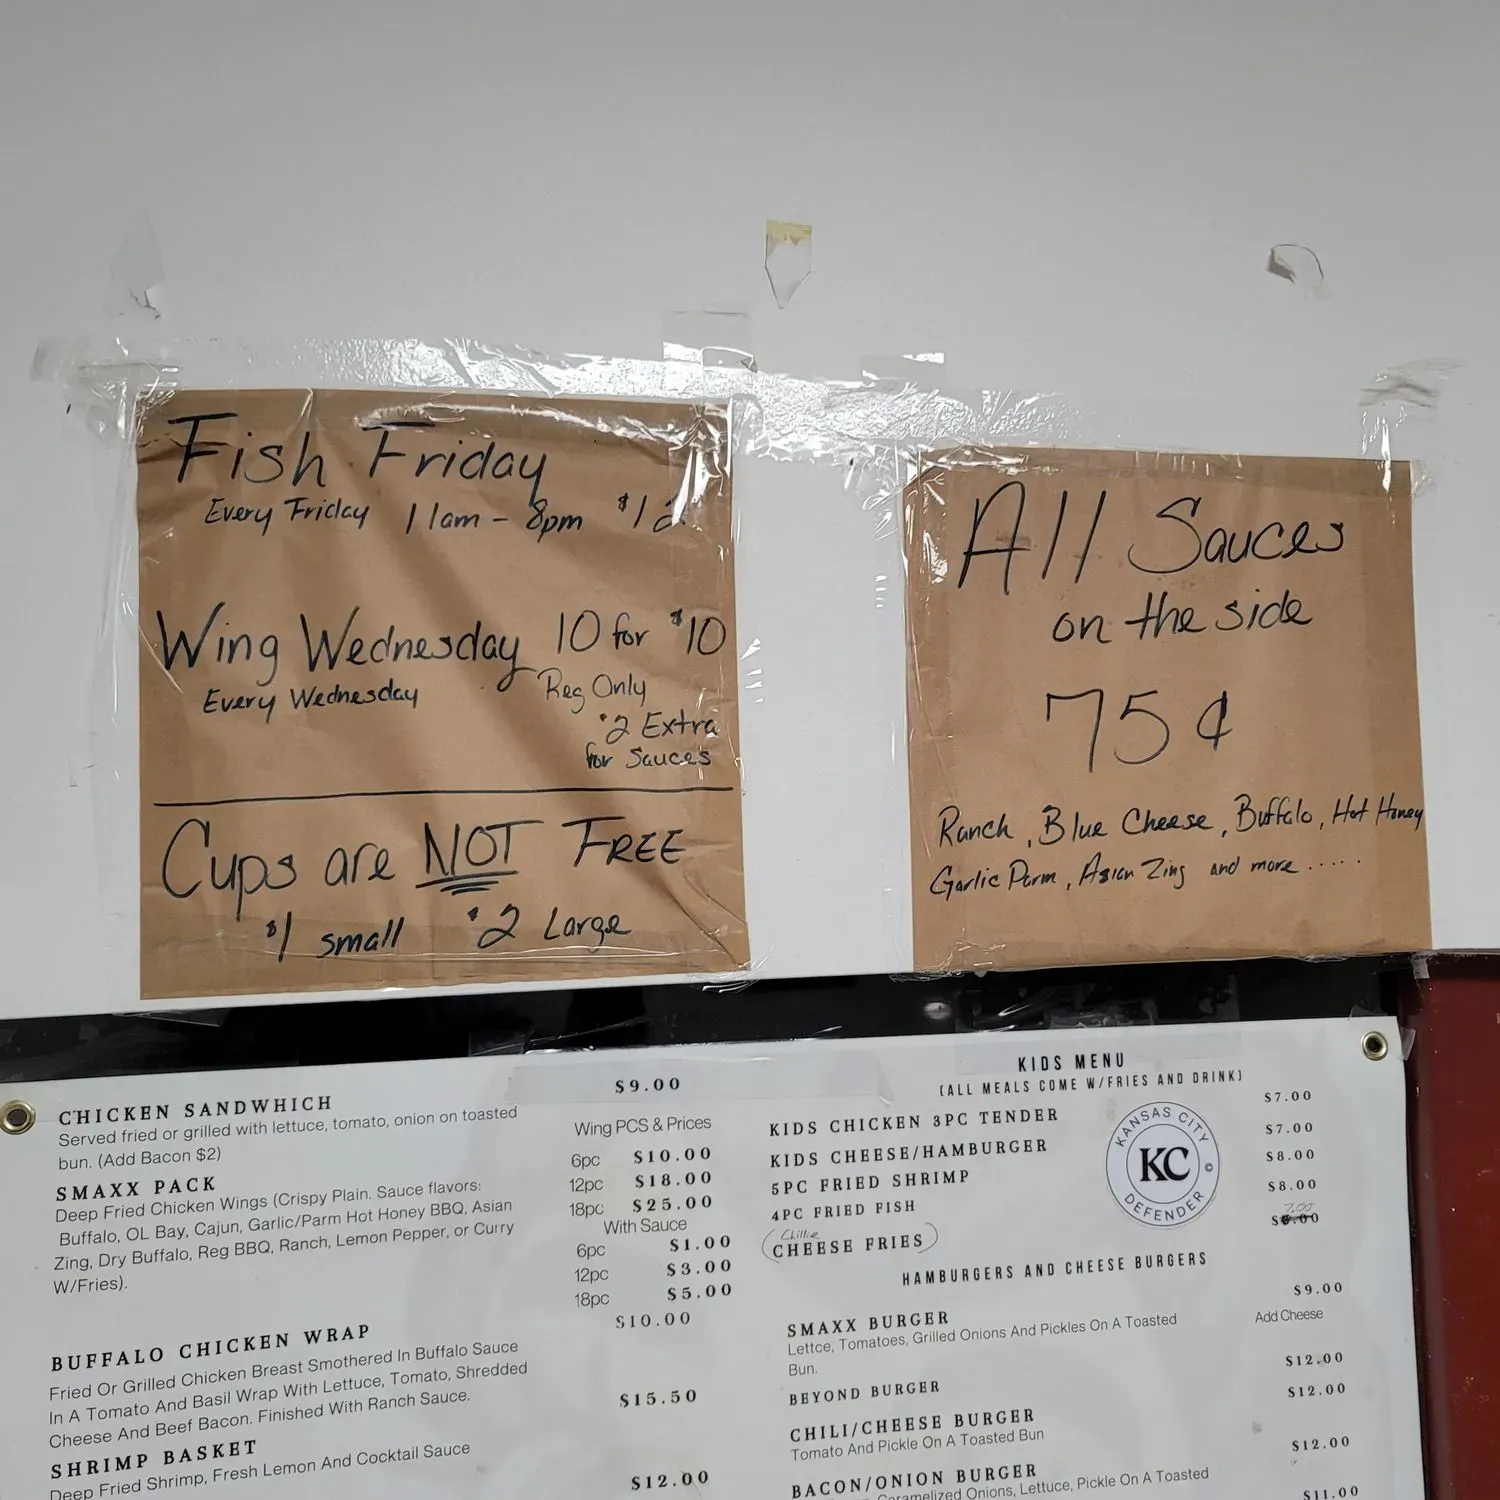 Fish Friday
Every Friday 11am - 8pm $12
Wing Wednesday 10 for $10
Every Wednesday Reg Only
$2 Extra
for Sauces
Cups are NOT FREE
$1 small $2 Large
All Sauces
on the side
75¢
Ranch, Blue Cheese, Buffalo, Hot Honey
Garlic Parm, Asian Zing and more .....
CHICKEN SANDWHICH $9.00
Served fried or grilled with lettuce, tomato, onion on toasted
bun. (Add Bacon $2)
SMAXX PACK
Deep Fried Chicken Wings (Crispy Plain. Sauce flavors:
Buffalo, OL Bay, Cajun, Garlic/Parm Hot Honey BBQ, Asian
Zing, Dry Buffalo, Reg BBQ, Ranch, Lemon Pepper, or Curry
W/Fries).
Wing PCS & Prices
6pc $10.00
12pc $18.00
18pc $25.00
With Sauce
6pc $1.00
12pc $3.00
18pc $5.00
BUFFALO CHICKEN WRAP $10.00
Fried Or Grilled Chicken Breast Smothered In Buffalo Sauce
In A Tomato And Basil Wrap With Lettuce, Tomato, Shredded
Cheese And Beef Bacon. Finished With Ranch Sauce.
SHRIMP BASKET $15.50
Deep Fried Shrimp, Fresh Lemon And Cocktail Sauce
$12.00
KIDS MENU
(ALL MEALS COME W/FRIES AND DRINK)
KIDS CHICKEN 3PC TENDER $7.00
KIDS CHEESE/HAMBURGER $7.00
5PC FRIED SHRIMP $8.00
4PC FRIED FISH $8.00
Chillie 7.00
(CHEESE FRIES)
KANSAS CITY
KC
DEFENDER
©
HAMBURGERS AND CHEESE BURGERS
SMAXX BURGER $9.00
Lettce, Tomatoes, Grilled Onions And Pickles On A Toasted
Bun.
Add Cheese
BEYOND BURGER $12.00
CHILI/CHEESE BURGER $12.00
Tomato And Pickle On A Toasted Bun
BACON/ONION BURGER $12.00
Caramelized Onions, Lettuce, Pickle On A Toasted
$11.00